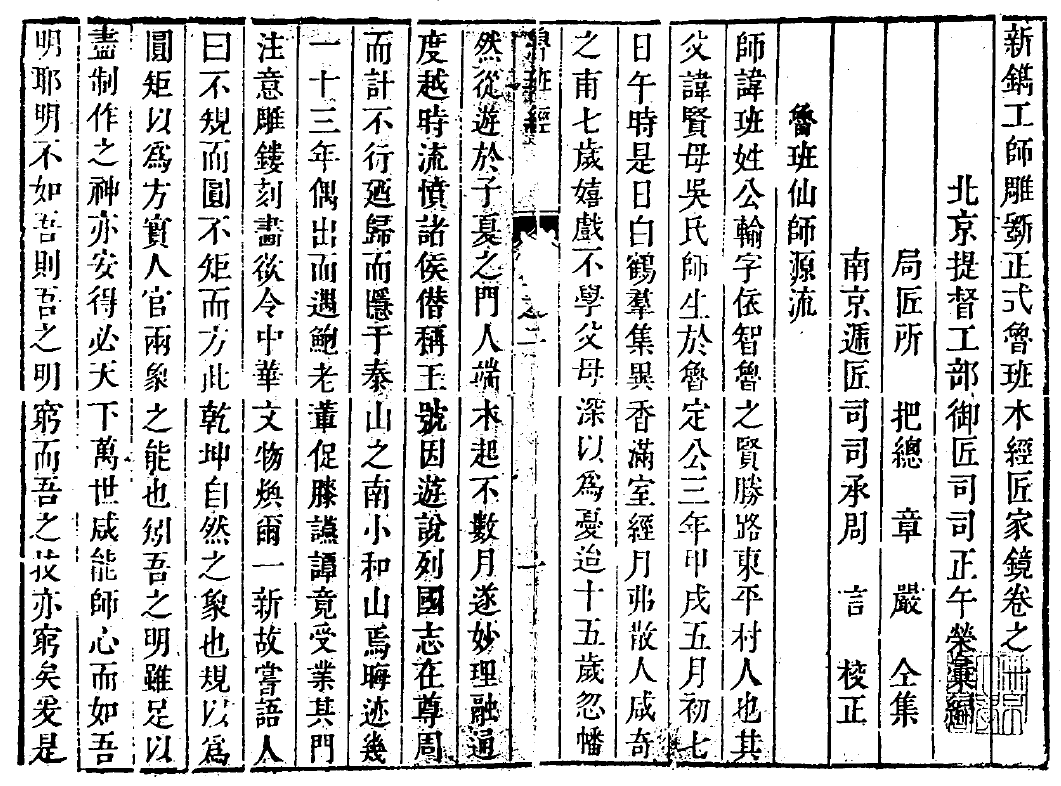 新鐫工師雕斵正式魯班木經匠家鏡卷之
北京提督工部御匠司司正午榮彙編
局匠所把總章嚴仝集
南京遞匠司司承周言校正
魯班仙師源流
師諱班姓公輸字依智魯之賢勝路東平村人也其
父諱賢母吳氏師生於魯定公三年甲戌五月初七
日午時是日白鶴羣集異香滿室經月弗散人咸奇
之甫七歲嬉戲不學父母深以爲憂迨十五歲忽幡
魯班經
卷之一
一
然從遊於子夏之門人端木起不數月遂妙理融通
度越時流憤諸侯僣稱王號因遊說列國志在尊周
而計不行廼歸而隱于泰山之南小和山焉晦迹幾
一十三年偶出而遇鮑老輩促膝讌譚竟受業其門
注意雕鏤刻畫欲令中華文物煥爾一新故嘗語人
曰不規而圓不矩而方此乾坤自然之象也規以爲
圓矩以爲方實人官兩象之能也矧吾之明雖足以
盡制作之神亦安得必天下萬世咸能師心而如吾
明耶明不如吾則吾之明窮而吾之技亦窮矣爰是